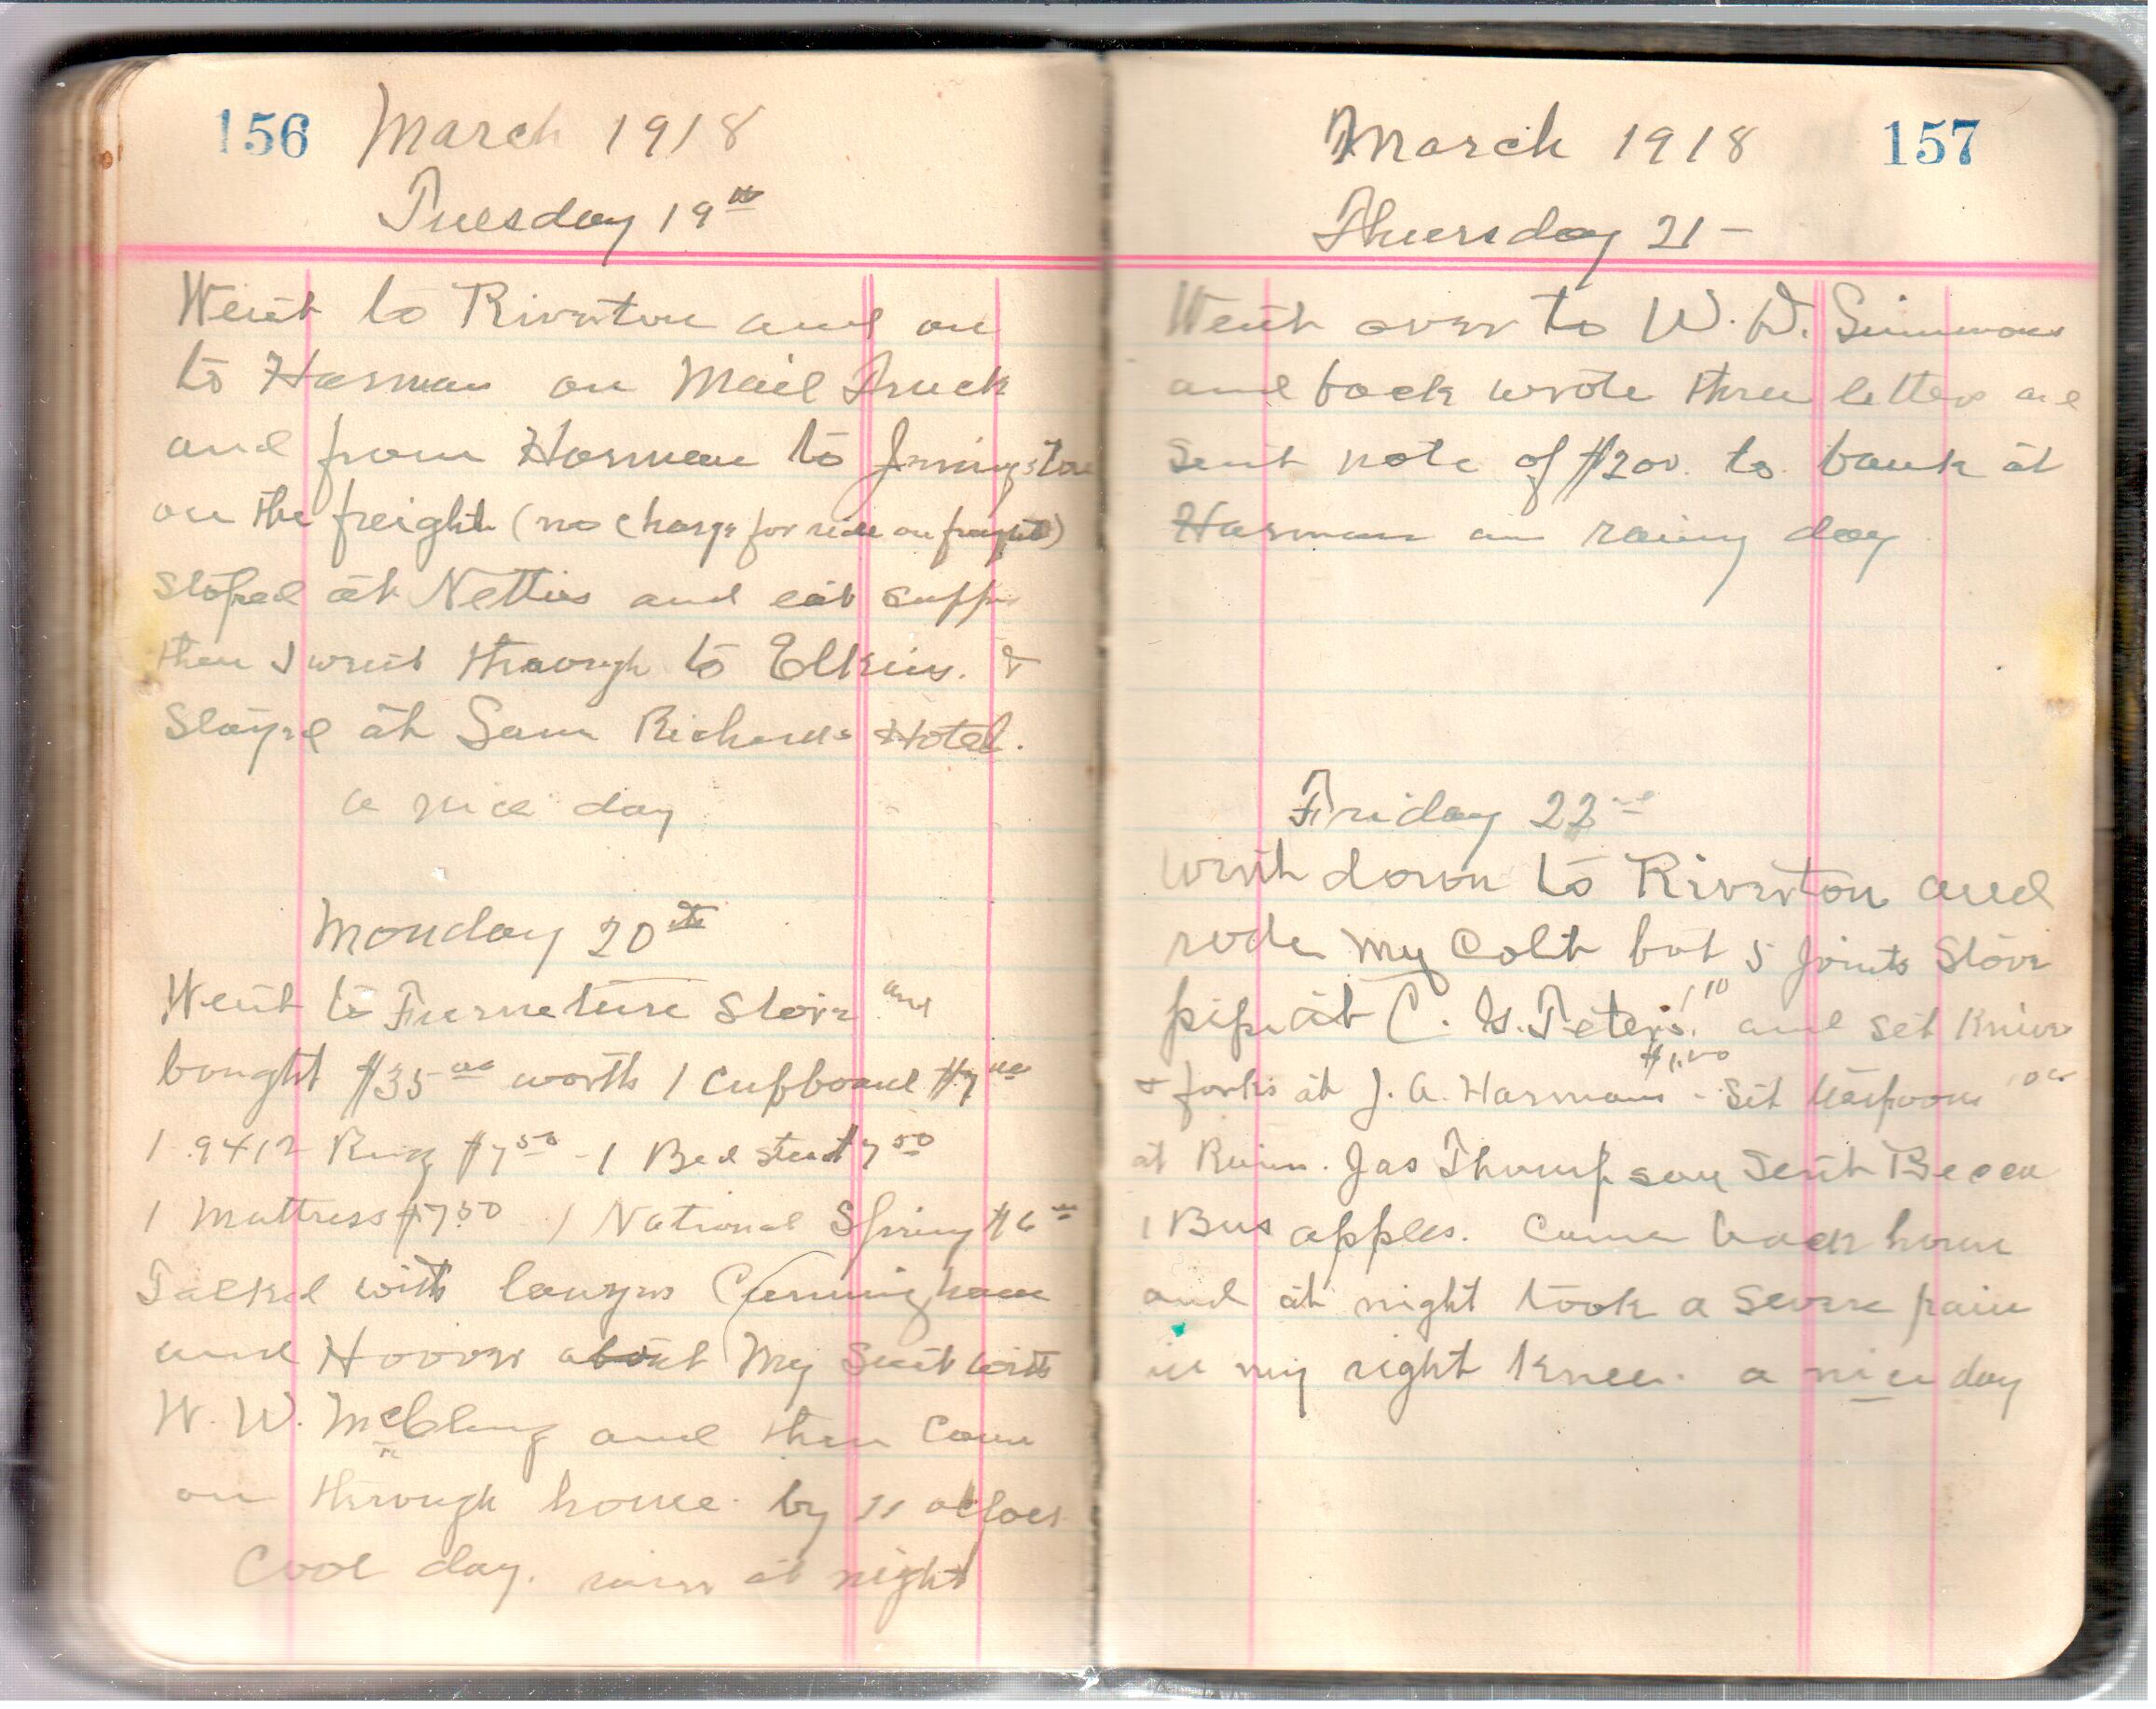 156 March 1918
Tuesday 19th
Went to Riverton and on
to Harman on Mail Truck
and from Harman to Jenningston
on the freight (no charge for ride on freight)
stoped at Netties and eat
then I went through to Elkins. &
Stayed at Sam Richards Hotel.
a nice day
Monday 20th
Went to Furneture Store and
bought $35 00 worth 1 Cupboard $7 00
1 9x12 Rug $7 50 - 1 Bed stead $7 50
1 Mattress $7.50 1 National Spring $6 00
Talked with lawyers Cunningham
and Hoover about My Suit with
W. W. McClung and then Come
on through home by 11
Cool day. at night
March 1918 157
Thursday 21 -
Went over to W. D. Simmons
and back wrote three letters and
Sent note of $200. to bank at
Harman a rainy day
Friday 22nd
went down to Riverton and
rode my Colt bot 5 Joints Stove
pipe at C. G. Teter's 1 10 and set Knives
& forks at J. A. Harmans $1.00 - Set teaspoons
at Jas Thompson Sent
1 Bus apples. Come back home
and at night took a severe pain
in my right Knee. a nice day